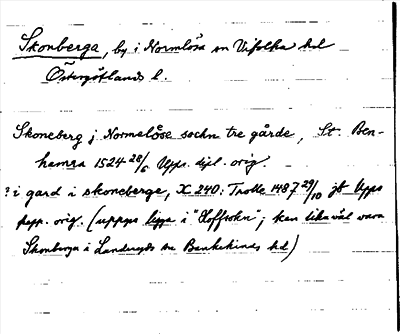 Skonberga, by i Normlösa sn Vifolka hd
Östergötlands l.
Skoneberg j Normeløse sochn tre gårde, St. Ben-
hamra 1524 28/6 Upps. dipl. orig.
? i gard i skoneberge, X 240: Trolle 1487 29/10 jb Upps
papp. orig. (uppges ligga i "Hoffsokn"; kan likaväl vara
Skonberga i Landeryds sn Bankekinds hd)